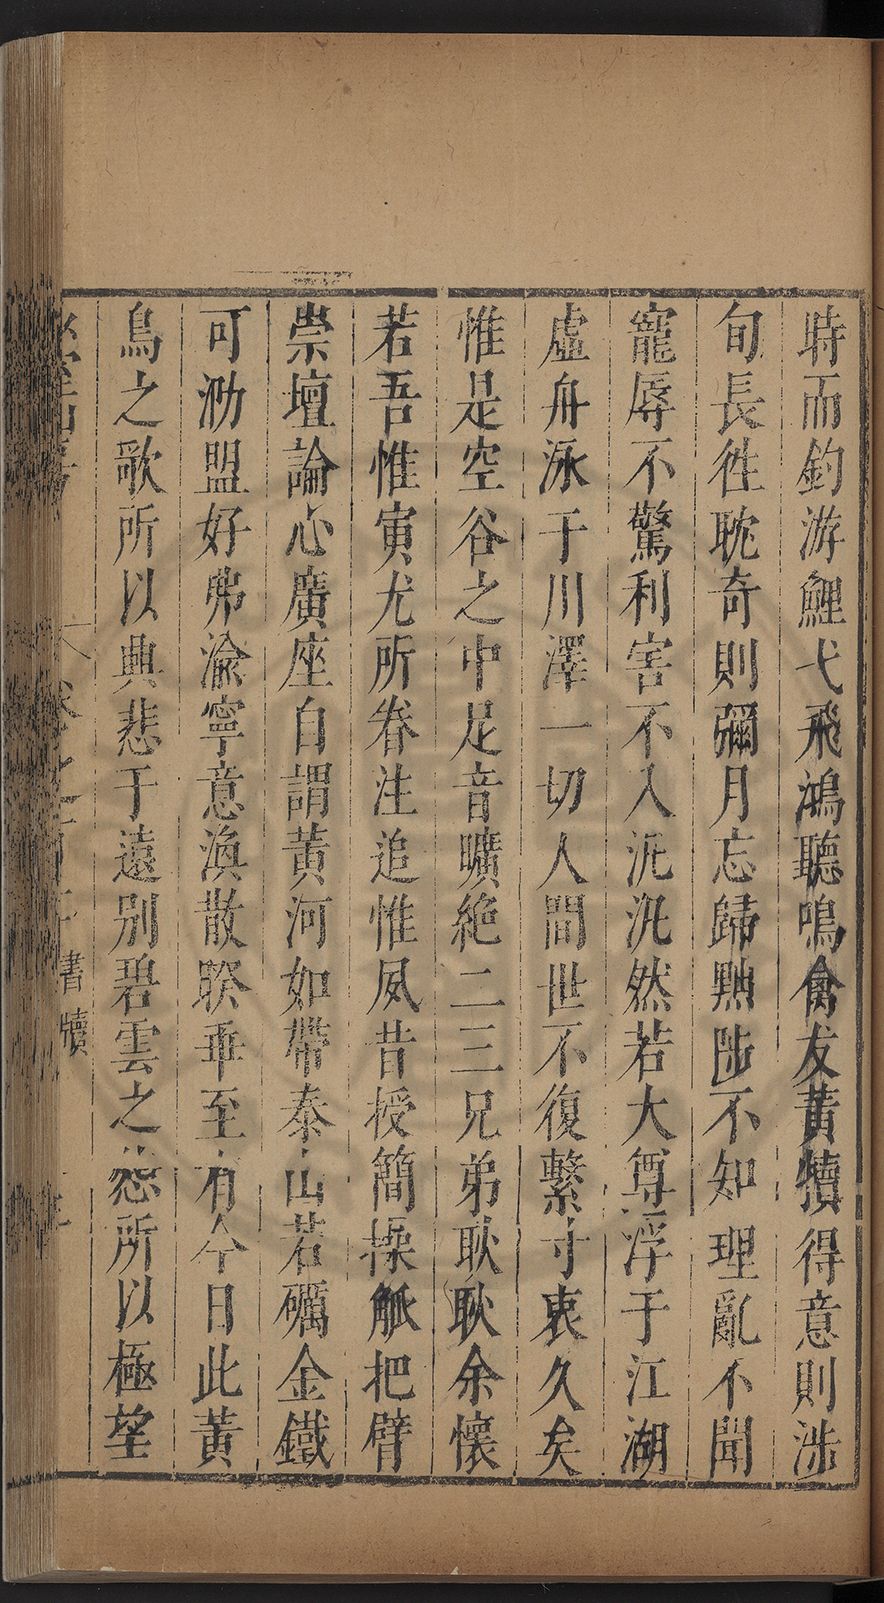 時而釣游鯉弋飛鴻聽鳴禽友黃犢得意則涉
旬長徃耽奇則彌月忘歸黜陟不知理亂不聞
寵辱不驚利害不入泥汎然若大尊浮于江湖
虛舟泳于川澤一切人間世不復繫寸衷久矣
惟是空谷之中足音曠絕二三兄弟耿耿余懷
若吾惟寅尤所眷注追惟夙昔授簡操觚把臂
崇壇論心廣座自謂黃河如帶泰山若礪金鐵
可泐盟好弗渝寧意渙散睽乖至有今日此黃
鳥之歌所以興悲于遠別碧雲之愁所以極望
書牘